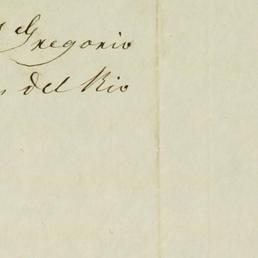 Gregorio
del Rio